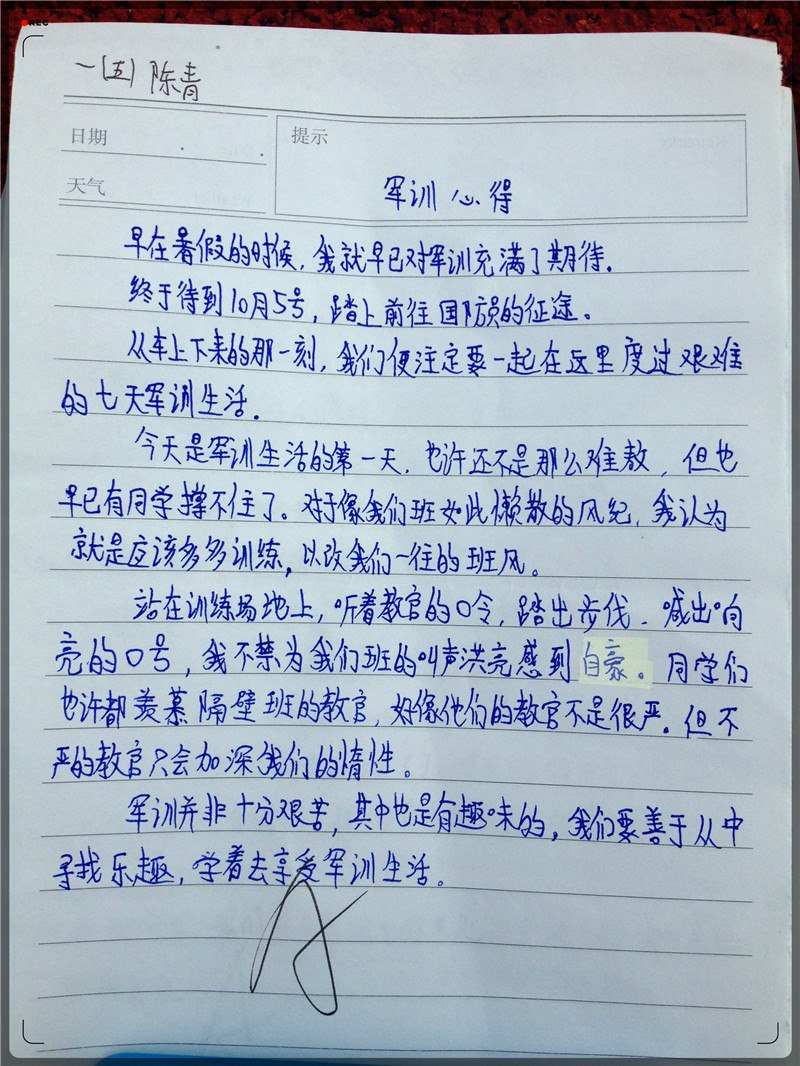 REC
一(五) 陈青
日期
提示
天气
军训心得
早在暑假的时候，我就早已对军训充满了期待。
终于待到10月5号，踏上前往国防园的征途。
从车上下来的那一刻，我们便注定要一起在这里度过艰难
的七天军训生活。
今天是军训生活的第一天，也许还不是那么难熬，但也
早已有同学撑不住了。对于像我们班如此懒散的风纪，我认为
就是应该多多训练，以改我们一往的班风。
站在训练场地上，听着教官的口令，踏出步伐，喊出响
亮的口号，我不禁为我们班的叫声洪亮感到自豪。同学们
也许都羡慕隔壁班的教官，好像他们的教官不是很严。但不
严的教官只会加深我们的惰性。
军训并非十分艰苦，其中也是有趣味的，我们要善于从中
寻找乐趣，学着去享受军训生活。
A